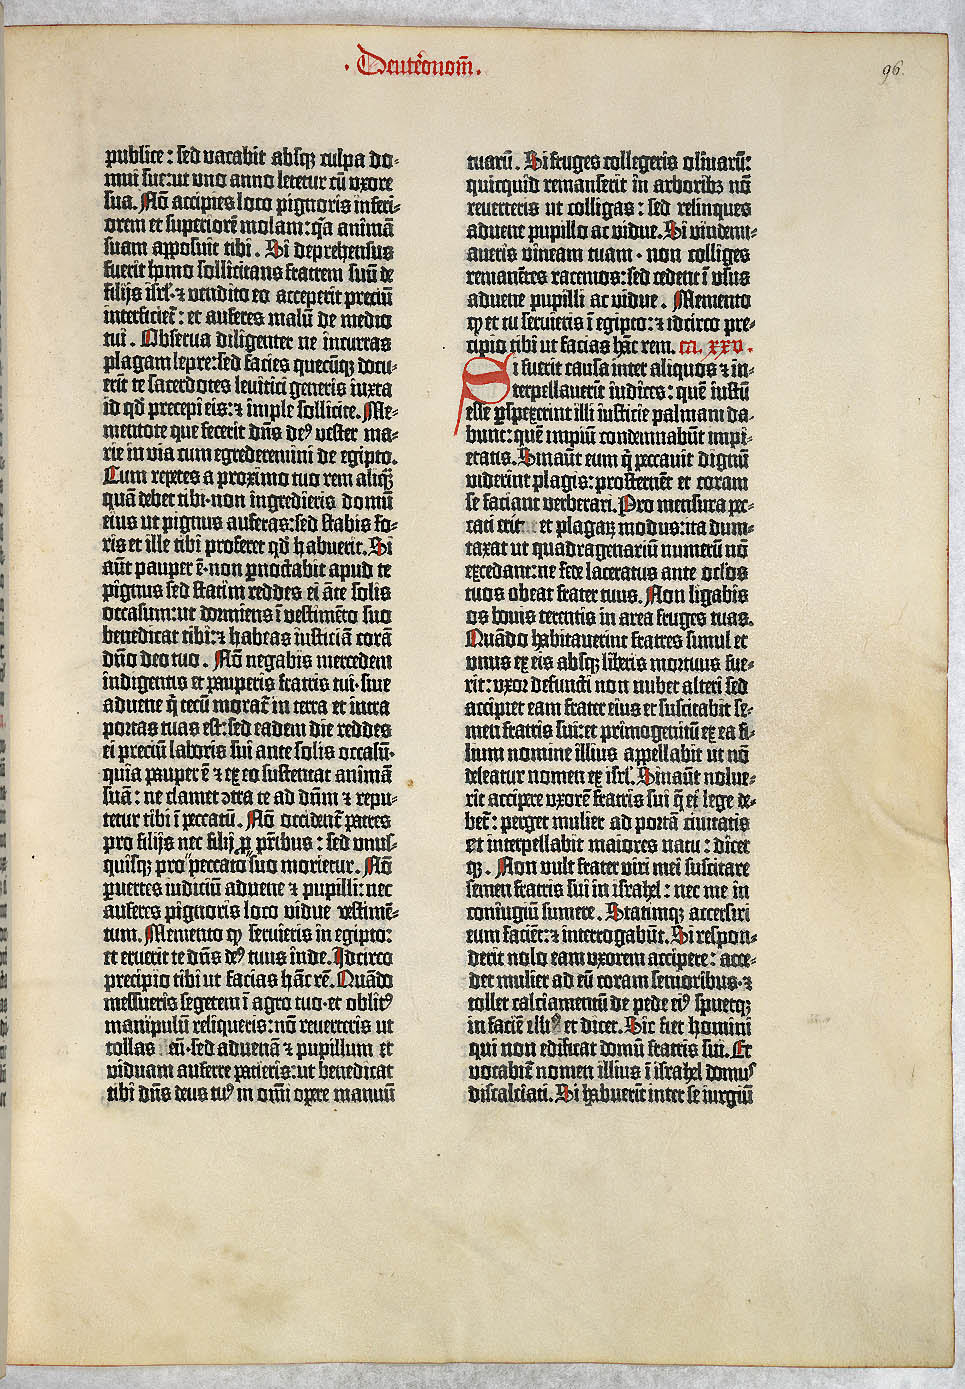 · Deut̃onom̃.
96.
publice : sed vacabit absq; culpa do-
mui sue: ut uno anno letetur cũ vxore
sua. Nõ accipies loco pignoris inferi-
orem et superiorẽ molam: q̃a animã
suam apposuit tibi . Si deprehensus
fuerit hõmo sollicitans fratrem suũ de
filijs isrl̃·⁊ vendito eo acceperit preciũ
interficiet̃ : et auferes malũ de medio
tui . Observa diligenter ne incurras
plagam lepre: sed facies quecũq; docu-
erĩt te sacerdotes levitici generis iuxta
id qd̃ precepi eis: ⁊ imple sollicite. Me-
mentote que fecerit dñs deꝰ vester ma-
rie in via cum egrederemini de egipto.
Cum repetes a proximo tuo rem aliq̃
quã debet tibi·non ingredieris domũ
eius ut pignus auferas: sed stabis fo-
ris et ille tibi proferet qd̃ habuerit. Si
aũt pauper ẽ·non p̱noctabit apud te
pignus sed statim reddes ei ãte solis
occasum: ut dormiens ĩ vestimẽto suo
benedicat tibi: ⁊ habeas iusticiã corã
dño deo tuo . Nõ negabis mercedem
indigentis et pauperis fratris tui·sive
advene q̃ tecũ morat̃ in terra et intra
portas tuas est: sed eadem die reddes
ei preciũ laboris sui ante solis occasũ·
quia pauper ẽ ⁊ ex eo sustentat animã
suã : ne clamet ↄtra te ad dñm ⁊ repu-
tetur tibi ĩ peccatũ. Nõ occident̃ patres
pro filijs nec filij ꝓ pr̃ibus : sed unus-
quisq; pro peccato suo morietur. Nõ
pervertes iudiciũ advene ⁊ pupilli: nec
auferes pignoris loco vidue vestimẽ-
tum. Memento ꝙ servieris in egipto:
et eruerit te dñs deꝰ tuus inde. Idcirco
precipio tibi ut facias hãc rẽ. Quãdo
messueris segetem ĩ agro tuo·et oblitꝰ
manipulũ reliqueris: nõ reverteris ut
tollas eũ·sed advenã ⁊ pupillum et
viduam auferre patieris: ut benedicat
tibi dñs deus tuꝰ in om̃i opere manuũ
tuarũ . Si fruges collegeris olivarũ:
quicquid remanserit in arboribꝫ nõ
reverteris ut colligas : sed relinques
advene pupillo ac vidue. Si vindemi-
averis vineam tuam · non colliges
remanẽtes racemos: sed cedent ĩ usus
advene pupilli ac vidue . Memento
ꝙ et tu servieris ĩ egipto: ⁊ idcirco pre-
cipio tibi ut facias hãc rem. ca. xxv.
Si fuerit causa inter aliquos ⁊ in-
terpellaverĩt iudices: quẽ iustũ
esse p̱spexerint illi iusticie palmam da-
bunt: quẽ impiũ condemnabũt impi-
etatis. Sinaũt eum q̃ peccavit dignũ
viderint plagis: prosternent et coram
se faciant verberari. Pro mensura pec-
cati erit et plagaꝝ modus: ita dum-
taxat ut quadragenariũ numerũ nõ
excedant: ne fede laceratus ante oc̃los
tuos obeat frater tuus. Non ligabis
os bovis terentis in area fruges tuas.
Quãdo habitaverint fratres simul et
unus ex eis absq; liberis mortuus fue-
rit: vxor defuncti non nubet alteri sed
accipiet eam frater eius et suscitabit se-
men fratris sui: et primogenitũ ex ea fi-
lium nomine illius appellabit ut nõ
deleatur nomen ex isrl̃. Sinaũt nolue-
rit accipere vxorẽ fratris sui q̃ ei lege de-
bet̃ : perget mulier ad portã civitatis
et interpellabit maiores natu : dicet
q; . Non vult frater viri mei suscitare
semen fratris sui in israhel : nec me in
coniugiũ sumere . Statimq; accersiri
eum faciẽt: ⁊ interrogabũt. Si respon-
derit nolo eam vxorem accipere : acce-
det mulier ad eũ coram senioribus·⁊
tollet calciamentũ de pede eiꝰ spuetq;
in faciẽ illiꝰ et dicet. Sic fiet homini
qui non edificat domũ fratris sui. Et
vocabit̃ nomen illius ĩ israhel domus
discalciati. Si habuerit inter se iurgiũ